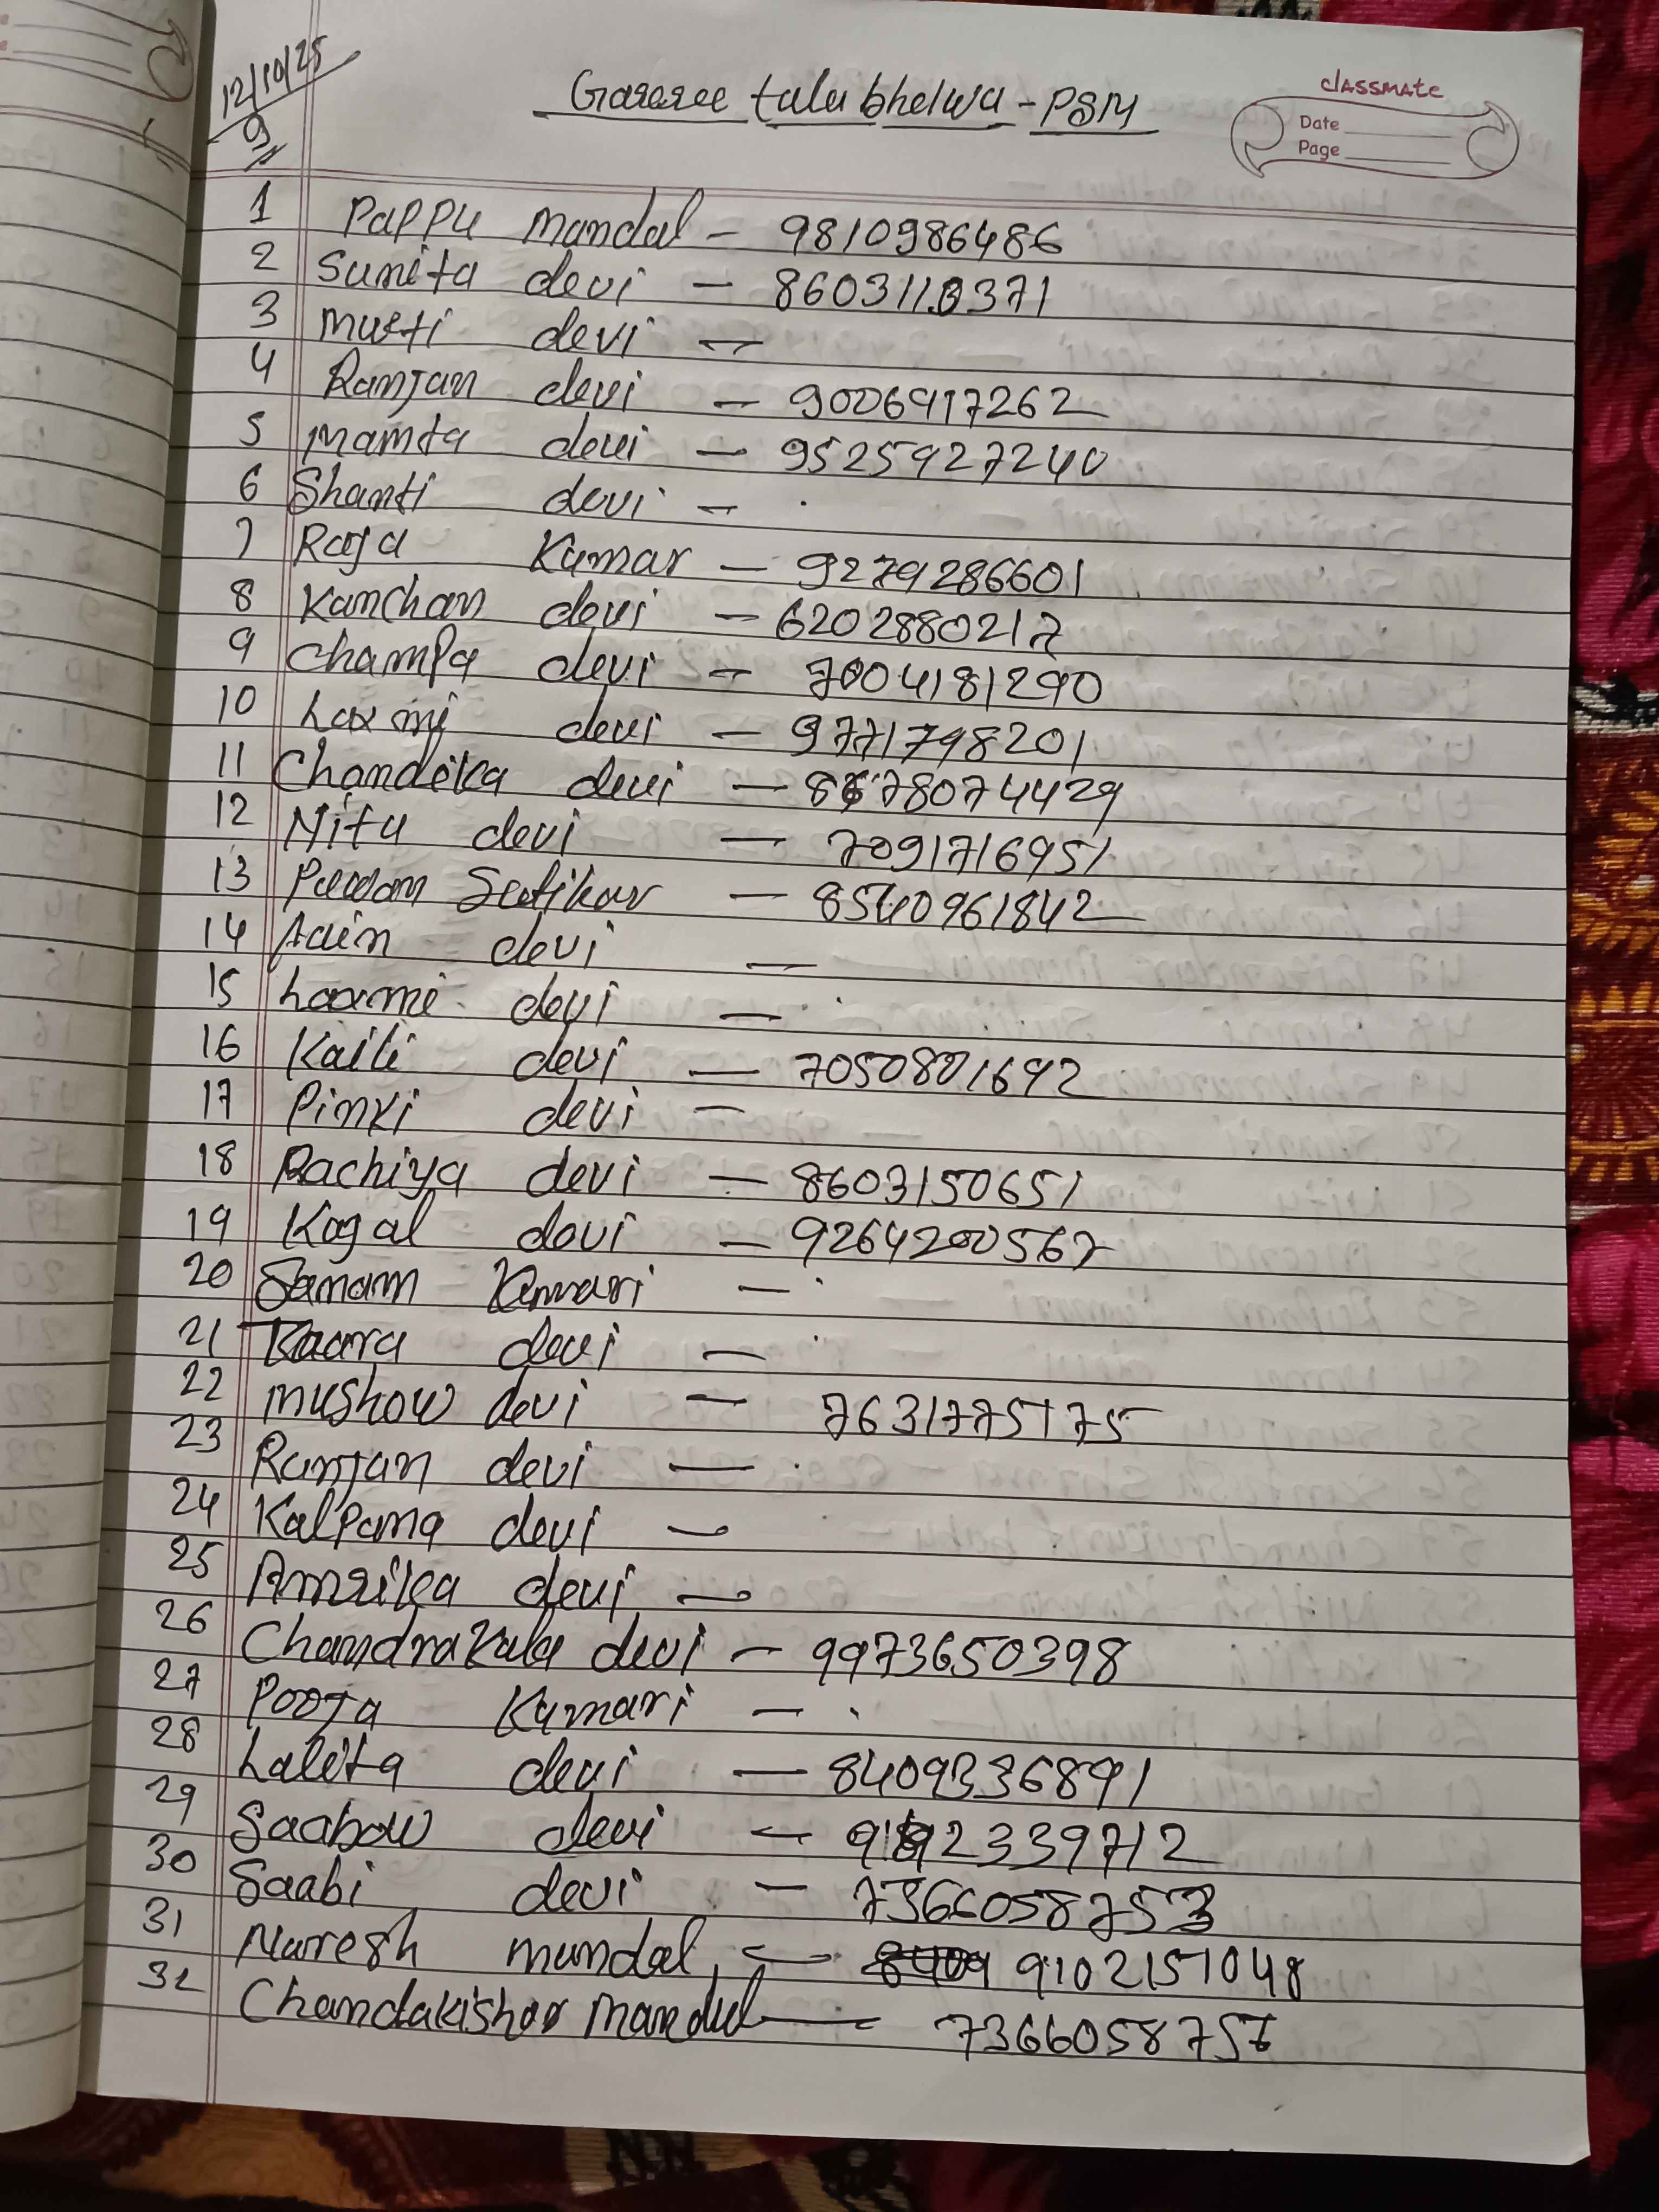 12/10/25
9
Gareree tala bhelwa - PSM
classmate
Date
Page
1 Pappu mandal - 9810986486
2 Sunita devi - 8603113371
3 Mukti devi -
4 Ranjan devi - 9006917262
5 Mamta devi - 9525927240
6 Shanti devi -
7 Raja Kumar - 9279286601
8 Kanchan devi - 6202880217
9 Champa devi - 7004181290
10 Laxmi devi - 9771798201
11 Chandeka devi - 8678074429
12 Nita devi - 7091716951
13 Pawan - 8540961842
14 devi -
15 Laxmi devi -
16 Kaili devi - 7050801692
17 Pinki devi -
18 Rachiya devi - 8603150651
19 Kajal devi - 9264200567
20 Sanam Kumari -
21 devi -
22 Mushow devi - 7631775175
23 Ranjan devi -
24 Kalpana devi -
25 Amrika devi -
26 Chandrakala devi - 9973650398
27 Pooja Kumari -
28 Laleta devi - 8409336891
29 Saabow devi -
30 Saabi devi - 7366058753
31 Naresh mandal - 9102151048
32 Chandakishor Mandul -